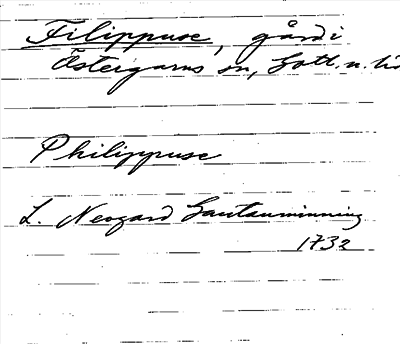 Filippuse, gård i
Östergarns sn, Gotl. n. tid
Philippuse
L. Neogard Gautauminning
1732